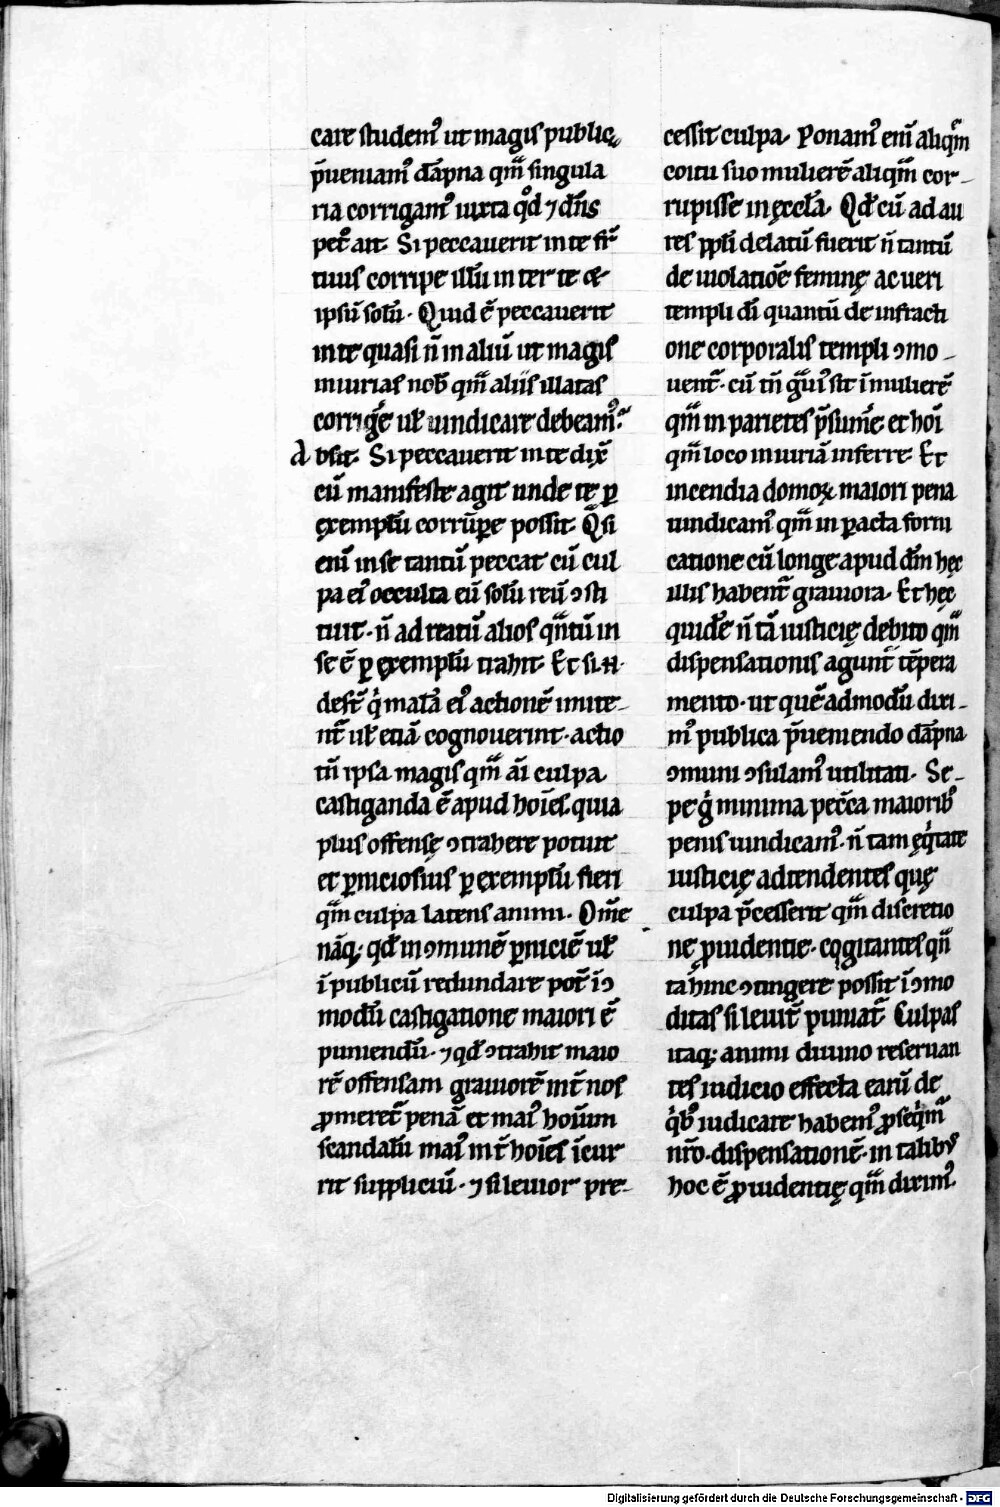 care studem᷒ ut magis public
p̄ueniam᷒ dāpna qm̄ singula
ria corrigam᷒ iuxta qd̓ ⁊ dn̄s
pet᷒ ait. Si peccauerit in te fr̄
tuus corripe illū inter te &
ipsū solū. Quid ē peccauerit
in te quasi n̄ in aliū ut magis
iniurias nob̄ qm̄ aliis illatas
corrigē ul̄ uindicare debeam᷒
Absit. Si peccauerit in te dix̄
cū manifeste agit unde te ꝑ
ęxemplū corrūpere possit. Q̄si
eni᷒ in se tantū peccat cū cul
pa ei᷒ occulta eū solū reū ↄsti
tuit. n̄ ad reatū alios qn̄tū in
se ē ꝑ ęxemplū trahit. Et si n̄
desr̄ q̍ malā ei᷒ actionē imite-
nt̄ ul̄ etiā cognouerint. actio
tn̄ ipsa magis qm̄ āi culpa
castiganda ē apud hoīes. quia
plus offensę ↄtrahere potuit
et ꝑniciosius ꝑ ęxemplū fieri
qm̄ culpa latens animi. Om̄e
nāq; qd̄ in ↄmunē ꝑniciē ul̄
ī publicū redundare pot̄ īↄ
modū castigatione maiori ē
puniendū. ⁊ qd̄ ↄtrahit maio
rē offensam grauiorē int̄ nos
ꝓmeret̄ penā et mai᷒ hoīum
scandalū mai᷒ int̄ hoīes īcur
rit suppliciū. ⁊ si leuior pre-
cessit culpa. Ponam᷒ eni᷒ aliqm̄
coitu suo mulierē aliqm̄ cor-
rupisse in ęccl̄a. Qd̄ cū ad au
res ppl̄i delatū fuerit n̄ tantū
de uiolatiōe feminę ac ueri
templi dī quantū de infracti
one corporalis templi ↄmo-
uent̄. cū tn̄ g̃ui᷒ sit ī mulierē
qm̄ in parietes p̄sumē et hoī
qm̄ loco iniuriā inferre. Et
incendia domoꝝ maiori pena
uindicam᷒ qm̄ in ꝑacta forni
catione cū longe apud dm̄ hęc
illis habent̄ grauiora. Et hęc
quidē n̄ tā iusticię debito qm̄
dispensationis agunt̄ tēpera
mento. ut quēadmodū dixi-
m᷒ publica p̄ueniendo dāpna
ↄmuni ↄsulam᷒ utilitati. Se-
pe g̍ minima pecc̄a maiorib᷒
penis uindicam᷒. n̄ tam ęq̍tate
iusticię adtendentes quę
culpa p̄cesserit qm̄ discretio
nē ꝓuidentie. cogitantes qn̄
ta hinc ↄtingere possit īↄmo
ditas si leuit̄ puniat̄. Culpas
itaq; animi diuino reseruan
tes iudicio effecta earū de
q̍b᷒ iudicare habem᷒ ꝓseq̍m̄
nr̄o. dispensationē. in talib᷒
hoc ē ꝓuidentię qm̄ dixim᷒.
Digitalisierung gefördert durch die Deutsche Forschungsgemeinschaft - DFG